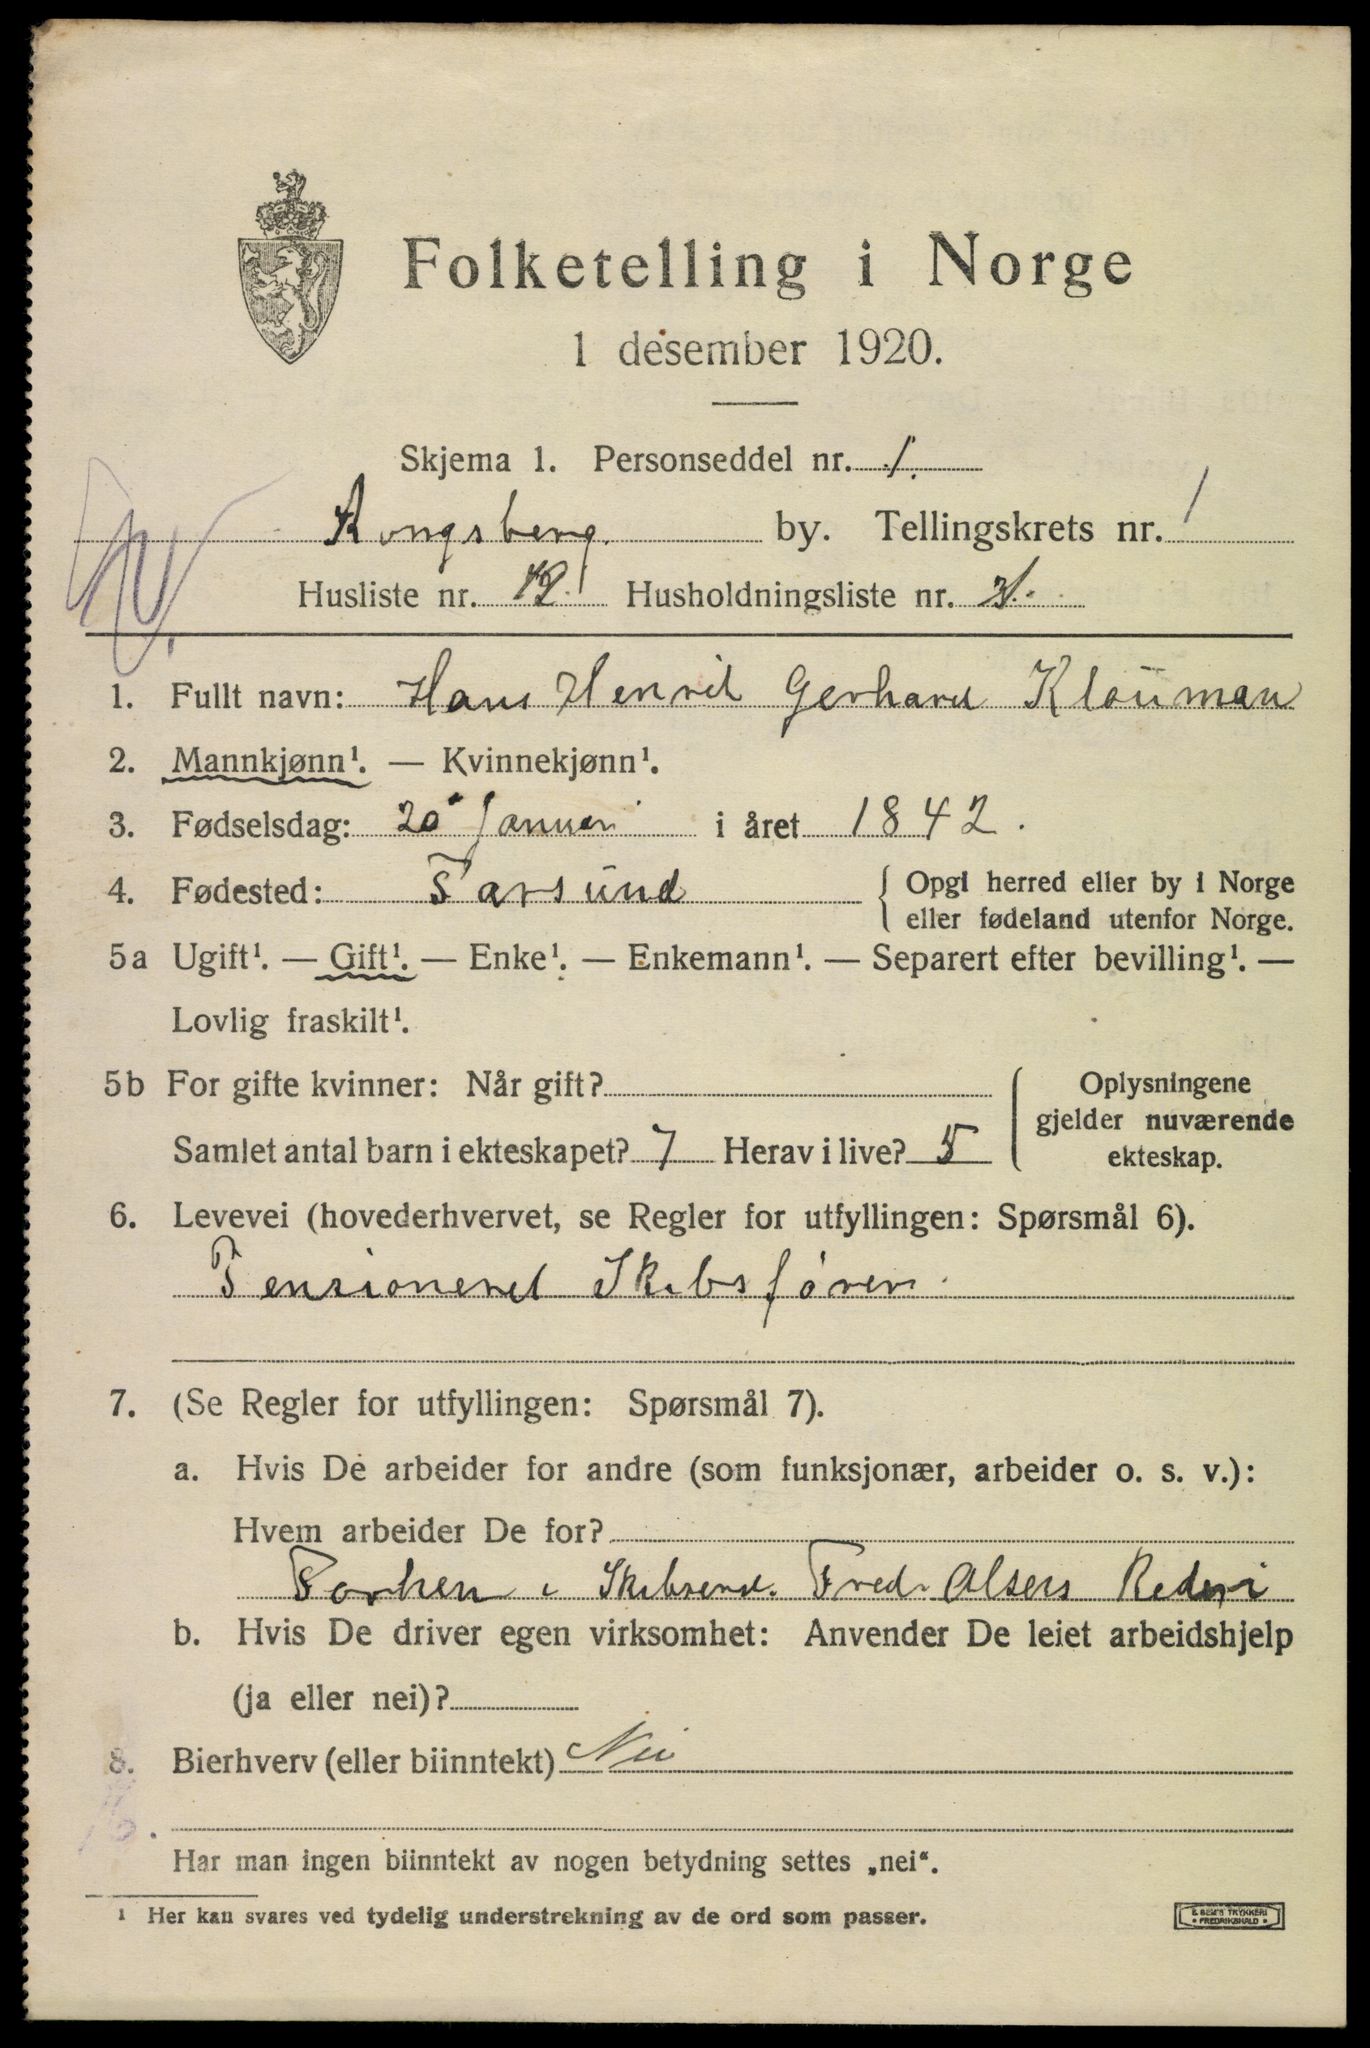 Folketelling i Norge
1 desember 1920.
Skjema 1. Personseddel nr. 1.
Kongsberg. by. Tellingskrets nr. 1
Husliste nr. Husholdningsliste nr.
1. Fullt navn: Hans Henrik Gerhard Klouman
2. Mannkjønn¹. — Kvinnekjønn¹.
3. Fødselsdag: 20 Januari i året 1842.
4. Fødested: Farsund { Opgi herred eller by i Norge
eller fødeland utenfor Norge.
5a Ugift¹. — Gift¹. — Enke¹. — Enkemann¹. — Separert efter bevilling¹. —
Lovlig fraskilt¹.
5b For gifte kvinner: Når gift? { Oplysningene
gjelder nuværende
Samlet antal barn i ekteskapet? 7 Herav i live? 5 ekteskap.
6. Levevei (hovederhvervet, se Regler for utfyllingen: Spørsmål 6).
Pensioneret Skibsfører.
7. (Se Regler for utfyllingen: Spørsmål 7).
a. Hvis De arbeider for andre (som funksjonær, arbeider o. s. v.):
Hvem arbeider De for?
i Fred. Olsens Rederi
b. Hvis De driver egen virksomhet: Anvender De leiet arbeidshjelp
(ja eller nei)?
8. Bierhverv (eller biinntekt) Nei
Har man ingen biinntekt av nogen betydning settes „nei“.
¹ Her kan svares ved tydelig understrekning av de ord som passer.
E SEM'S TRYKKERI
• FREDRIKSHALD •